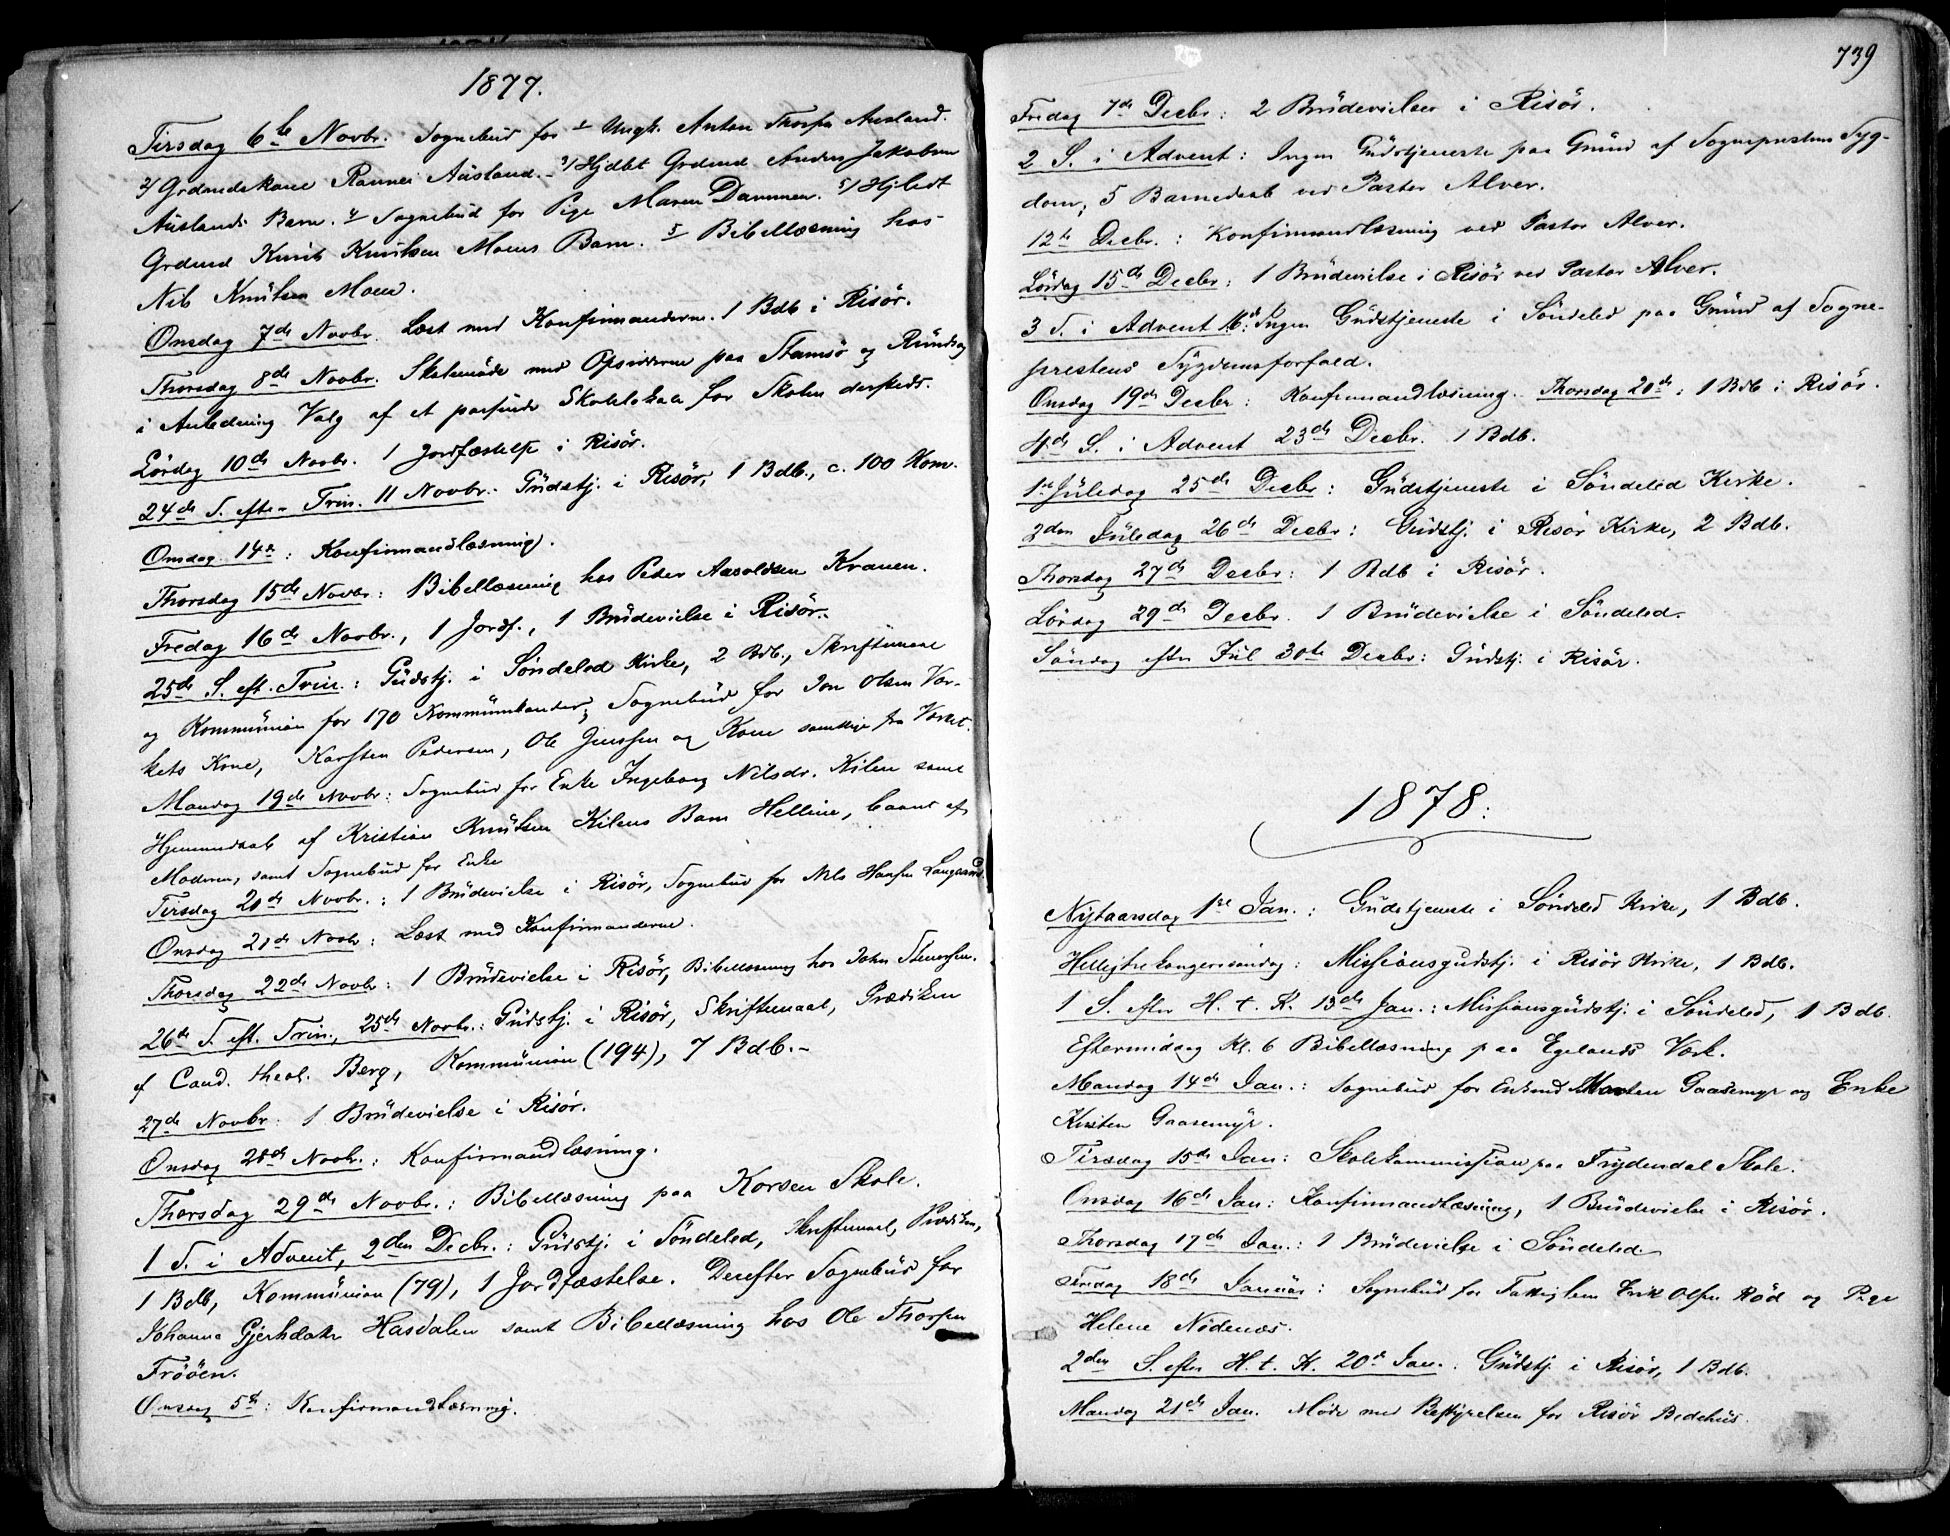 1877.
Tirsdag 6te Novbr. Sognebud for 1/ Ungk. Anton Thorsen Ausland.
2/ Grdmdskone Rannei Ausland. 3/ Hjdbt Grdmd Anders Jakobsen
Auslands Barn. 4/ Sognebud for Pige Maren Dammen. 5/ Hjdbt
Grdmd Knut Knutsen Moens Barn. Bibellæsning hos
Nils Knutsen Moen.
Onsdag 7de Novbr. Læst med Konfirmanderne. 1 Bdb i Risör.
Thorsdag 8de Novbr. Skolemöde med Opsidderne paa Stamsö og
i Anledning Valg af et passende Skolelokale for Skolen dersteds.
Lördag 10de Novbr. 1 Jordfæstelse i Risör.
24de S. efter Trin. 11 Novbr. Gudstj. i Risör, 1 Bdb., c. 100 Kom.
Onsdag 14de: Konfirmandlæsning.
Thorsdag 15de Novbr: Bibellæsning hos Peder Aasoldsen Kranen.
Fredag 16de Novbr., 1 Jordf., 1 Brudevielse i Risör.
25de S. eft. Trin.: Gudstj. i Söndeled Kirke, 2 Bdb., Skriftemaal
og Kommunion for 170 Kommunikander; Sognebud for Jon Olsen Vær-
kets Kone, Karsten Pedersen, Ole Jenssen og Kone samtlige fra Verket.
Mandag 19de Novbr: Sognebud for Enke Ingeborg Nilsdr. Kilen samt
Hjemmedaab af Kristian Knutsen Kilens Barn Helline, baaret af
Moderen, samt Sognebud for Enke
Tirsdag 20de Novbr.: 1 Brudevielse i Risör, Sognebud for Nils Hansen Langsand.
Onsdag 21de Novbr: Læst med Konfirmanderne.
Thorsdag 22de Novbr: 1 Brudevielse i Risör, Bibellæsning hos John Stenersen.
26de S. eft. Trin., 25de Novbr.: Gudstj. i Risör, Skriftemaal, Prædiken
af Cand. theol. Berg, Kommunion (194), 7 Bdb.-
27de Novbr: 1 Brudevielse i Risör.
Onsdag 28de Novbr.: Konfirmandlæsning.
Thorsdag 29de Novbr.: Bibellæsning paa Korsen Skole.
1 S. i Advent, 2den Decbr.: Gudstj. i Söndeled, Skriftemaal, Prædiken,
1 Bdb, Kommunion (79), 1 Jordfæstelse. Derefter Sognebud for
Johanne Gjerhdatr Hasdalen samt Bibellæsning hos Ole Thorsen
Frööen.
Onsdag 5te: Konfirmandlæsning.
739
Fredag 7de Decbr: 2 Brudevielser i Risör.
2 S. i Advent: Ingen Gudstjeneste paa Grund af Sogneprestens Syg-
dom; 5 Barnedaab ved Pastor Alver.
12te Decbr.: Konfirmandlæsning ved Pastor Alver.
Lördag 15de Decbr: 1 Brudevielse i Risör ved Pastor Alver.
3 S. i Advent 16de: Ingen Gudstjeneste i Söndeled paa Grund af Sogne-
prestens Sygdomsforfald.
Onsdag 19de Decbr: Konfirmandlæsning. Thorsdag 20de: 1 Bdb i Risör.
4de S. i Advent 23de Decbr. 1 Bdb.
1ste Juledag 25de Decbr: Gudstjeneste i Söndeled Kirke.
2den Juledag 26de Decbr: Gudstj. i Risör Kirke, 2 Bdb.
Thorsdag 27de Decbr: 1 Bdb i Risör.
Lördag 29de Decbr. 1 Brudevielse i Söndeled.
Söndag efter Jul 30te Decbr: Gudstj. i Risör.
1878:
Nytaarsdag 1ste Jan.: Gudstjeneste i Söndeled Kirke, 1 Bdb.
Helligtrekongersöndag: Missionsgudstj. i Risör Kirke, 1 Bdb.
1 S. efter H. t. K. 13de Jan.: Missionsgudstj. i Söndeled, 1 Bdb.
Eftermiddag Kl. 6 Bibellæsning paa Egelands Verk.
Mandag 14de Jan.: Sognebud for Enkemd Morten Gaasemyr og Enke
Kirsten Gaasemyr.
Tirsdag 15de Jan: Skolekommission paa Frydendal Skole.
Onsdag 16de Jan: Konfirmandlæsning, 1 Brudevielse i Risör.
Thorsdag 17de Jan.: 1 Brudevielse i Söndeled
Fredag 18de Januar: Sognebud for Fattiglem Erik Olsen Röd og Pige
Helene Nödenæs.
2den S. efter H. t. K. 20de Jan.: Gudstj. i Risör, 1 Bdb.
Mandag 21de Jan. Möde med Bestyrelsen for Risör Bedehus.